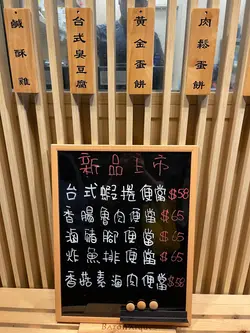 鹹酥雞
台式臭豆腐
黃金蛋餅
肉鬆蛋餅
新品上市
台式蝦捲便當 $58
香腸魯肉便當 $65
滷豬腳便當 $65
炸魚排便當 $65
香菇素滷肉便當 $58